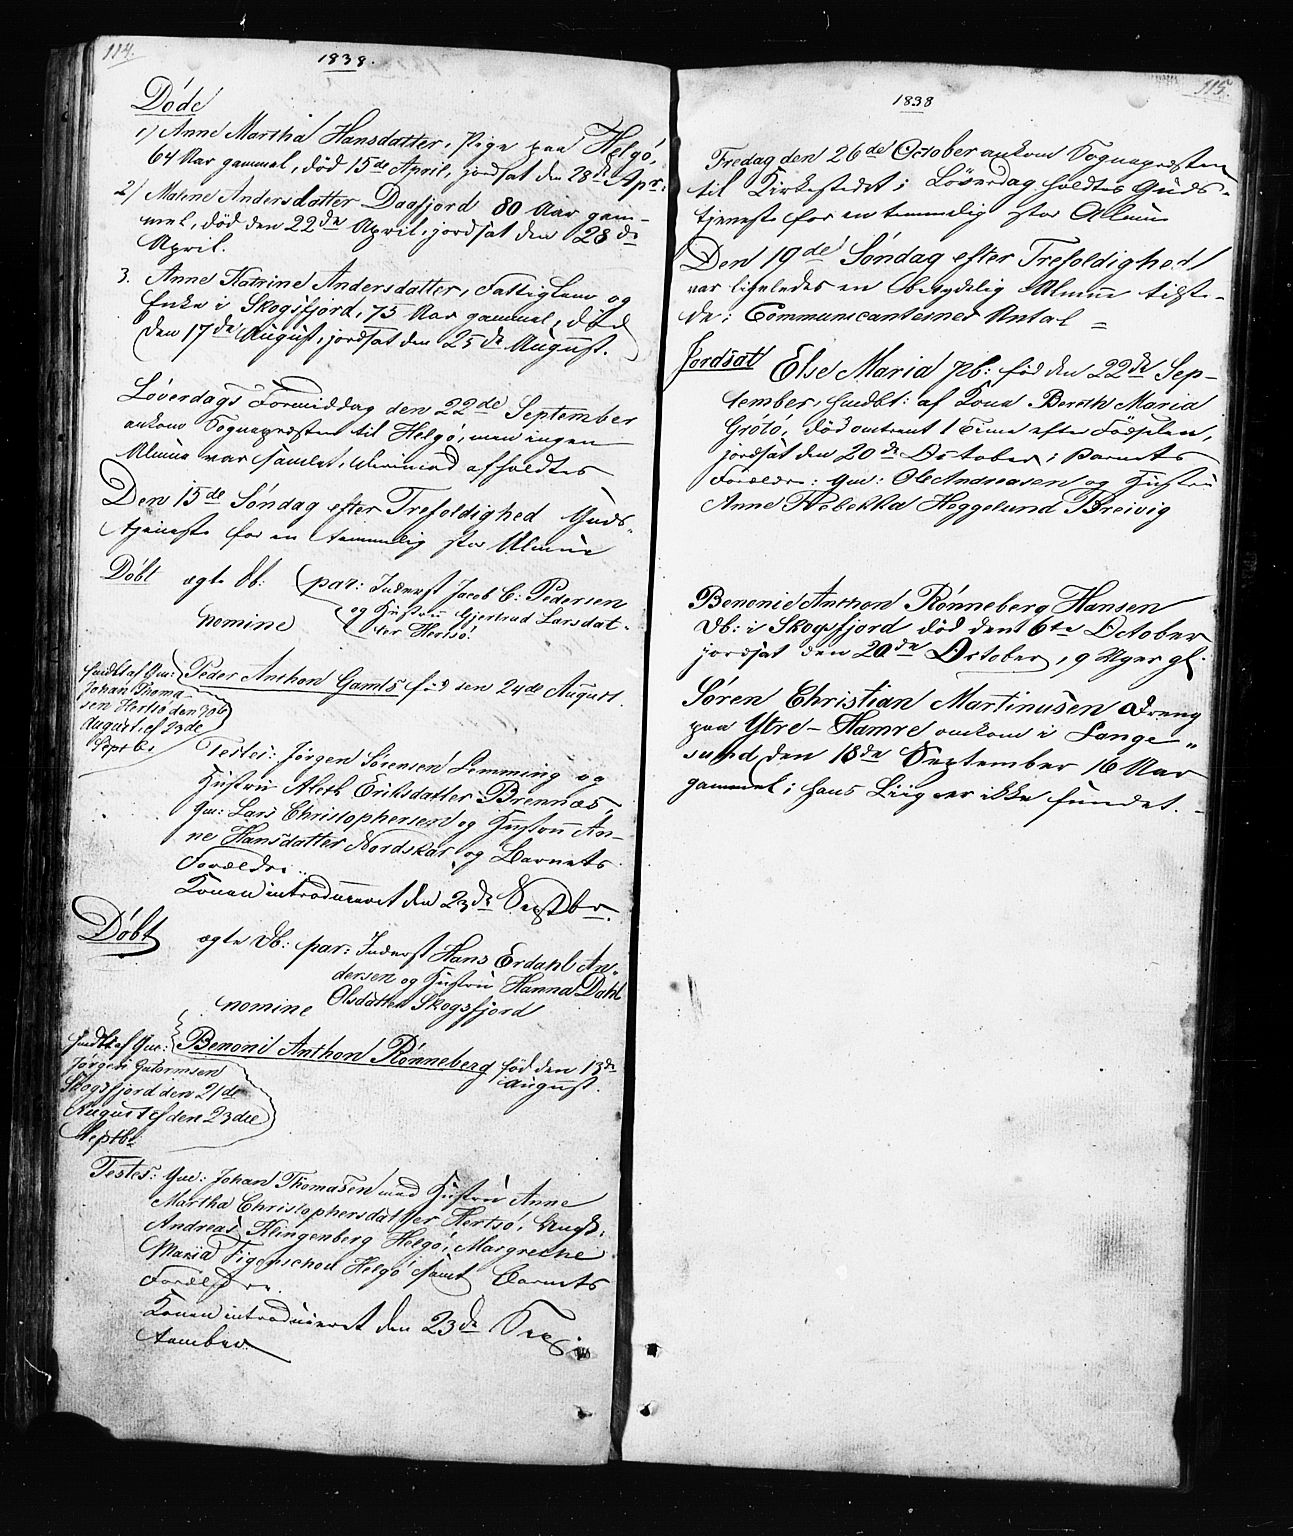 114.
1838.
Døde
1) Anne Martha Hansdatter, Pige paa Helgø,
64 Aar gammel, død 15de April, jordsat den 28de Apr:
2) Marne Andersdatter Daafjord 80 Aar gam-
mel, død den 22de April, jordsat den 28de
April.
3. Anne Katrine Andersdatter, Fattiglem og
Enke i Skogsfjord, 75 Aar gammel, død
den 17de August, jordsat den 25de August.
Løverdags Formiddag den 22de September
ankom Sognepræsten til Helgø, men ingen
Almue var samlet, afholdtes
Den 15de Søndag efter Trefoldighed Guds-
tjeneste for en temmelig stor Almue
Døbt ægte Db: par: Inderst Jacob C: Pedersen
og Hustru Gjertrud Larsdat-
ter Hertsø.
nomine
Peder Anthon Gamts fød den 24de August.
hmdbt af Gm:
Johan Thoma-
sen Hertsø den 30te
August, cf 23de
Septbr
Testes: Jørgen Sørensen Lemming og
Hustru Aleth Eriksdatter Brennæs,
Gm: Lars Christophersen og Hustru An-
ne Hansdatter Nordskar, og Barnets
Forældre.
Konen introduceret den 23de Septbr.
Døbt ægte Db: par: Inderst Hans Erdahl An-
dersen og Hustru Hanna Dahl
Olsdatter Skogsfjord
nomine
Benoni Anthon Rønneberg fød den 13de
August.
hmdbt af Gm:
Jørgen Gutormsen
Skogsfjord den 21de
August cf den 23de
Septbr
Testes: Gm: Johan Thomasen med Hustru Anne
Martha Christophersdatter Hertsø, Ungk:
Andreas Klingenberg Helgø, Margrethe
Maria Figenschou Helgø samt Barnets
Forældre.
Konen introduceret den 23de Sep-
tember.
115.
1838
Fredag den 26de October ankom Sognepræsten
til Kirkestedet; Løverdag holdtes Guds-
tjeneste for en temmelig stor Almue
Den 19de Søndag efter Trefoldighed
var ligeledes en betydelig Almue tilste-
de; Communicanternes Antal =
Jordsat Else Maria Pb: fød den 22de Sep-
tember, hmdbt: af Kone Bereth Maria
Grøtø, død omtrent 1 Time efter Fødslen,
jordsat den 20de October; Barnets
Forældre: Gm: Ole Andreasen og Hustru
Anne Rebekka Heggelund Breivig
Benonie Anthon Rønneberg Hansen
Db: i Skogsfjord død den 6te October
jordsat den 20de October, 9 Uger gl.
Søren Christian Martinusen Dreng
paa Ytre-Hamre omkom i Lange-
sund den 18de September 16 Aar
gammel; hans Liig er ikke fundet.